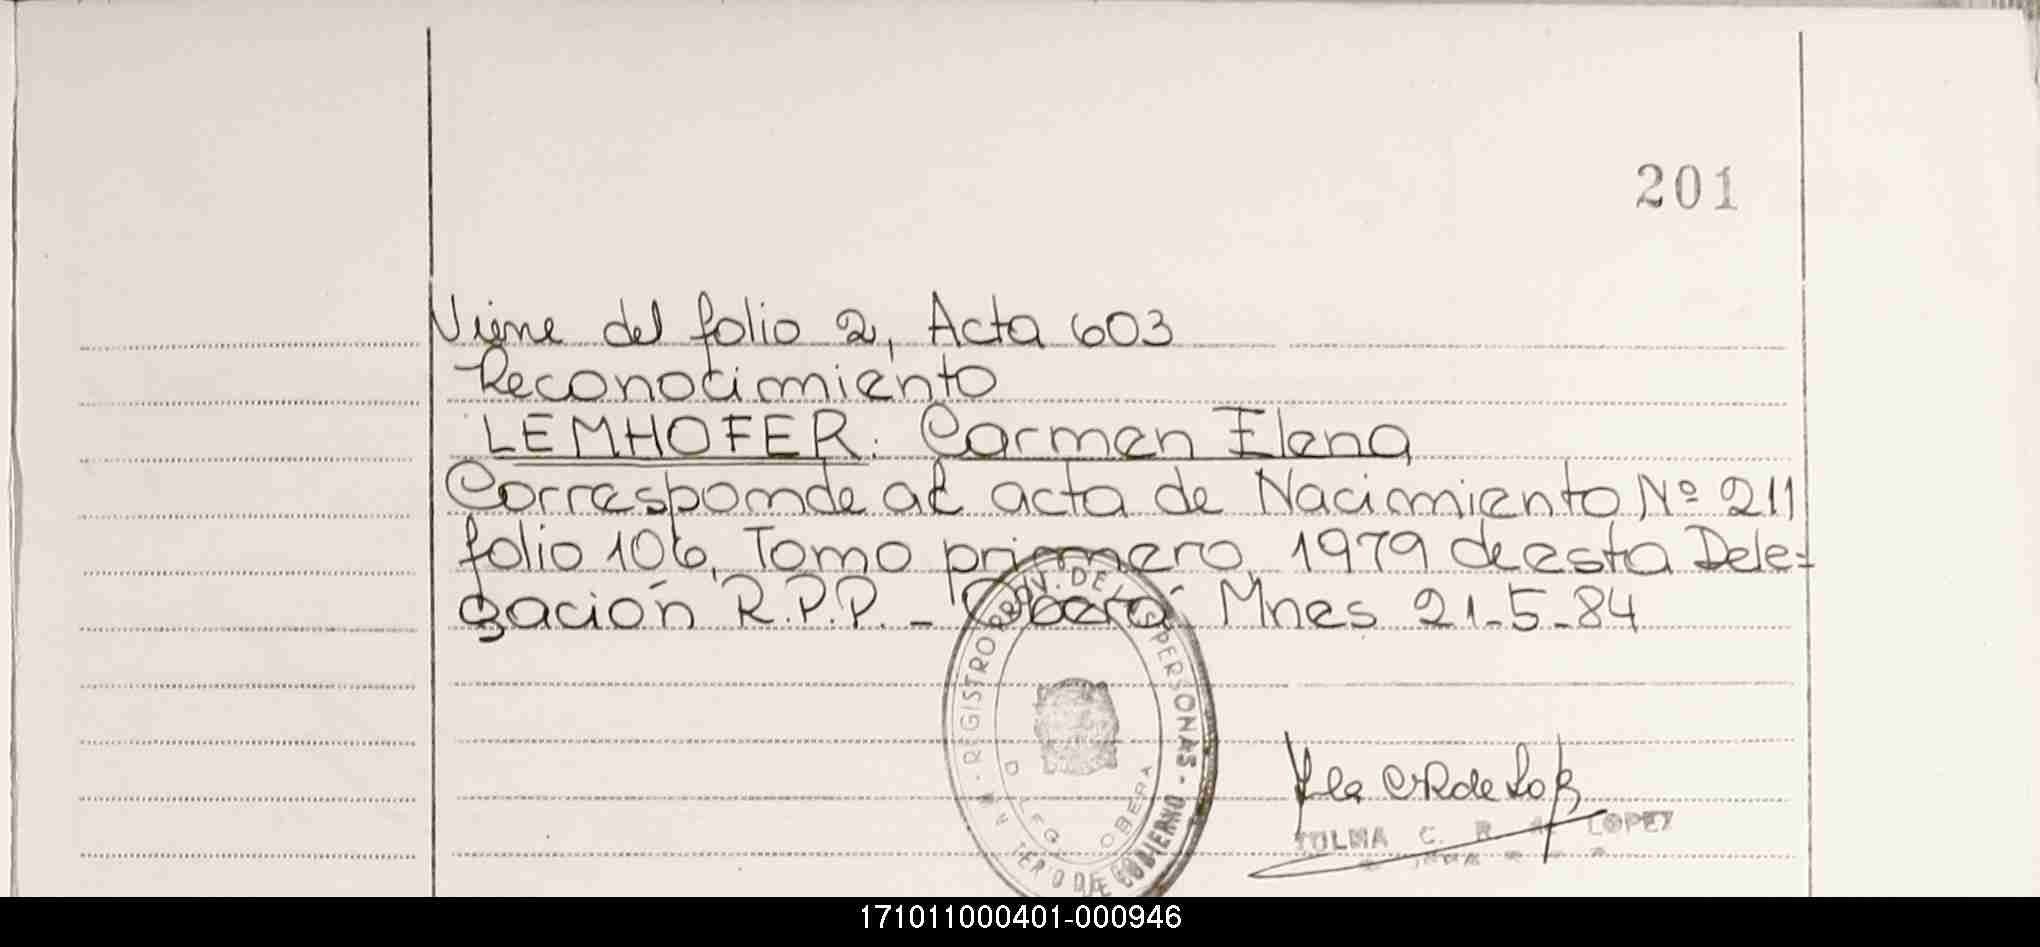 201
Viene del folio 2, Acta 603
Reconocimiento
LEMHOFER: Carmen Elena
Corresponde al acta de Nacimiento Nº 211
folio 106, Tomo primero, 1979 de esta Dele=
gación R.P.P. - Oberá Mnes 21-5-84
REGISTRO PROV. DE LAS PERSONAS -
DE GOBIERNO
OBERA
C. R. de LOPEZ
171011000401-000946